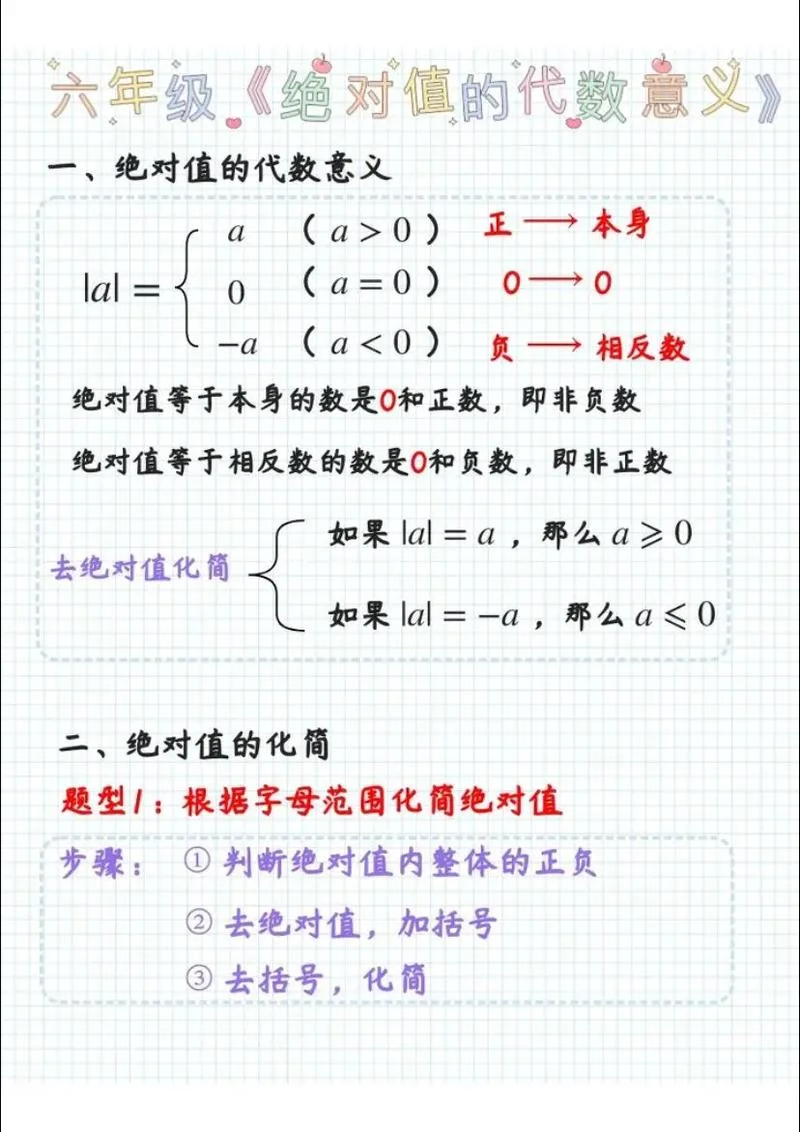 六年级《绝对值的代数意义》
一、绝对值的代数意义
a ( a > 0 ) 正 → 本身
|a| = { 0 ( a = 0 ) 0 → 0
−a ( a < 0 ) 负 → 相反数
绝对值等于本身的数是0和正数，即非负数
绝对值等于相反数的数是0和负数，即非正数
如果 |a| = a ，那么 a ⩾ 0
去绝对值化简
如果 |a| = −a ，那么 a ⩽ 0
二、绝对值的化简
题型1：根据字母范围化简绝对值
步骤： ① 判断绝对值内整体的正负
② 去绝对值，加括号
③ 去括号，化简